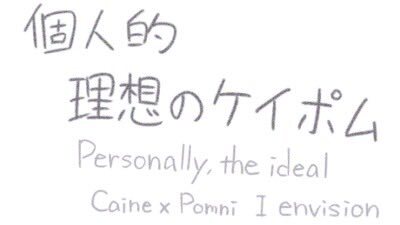 個人的
理想のケイポム
Personally, the ideal
Caine x Pomni I envision